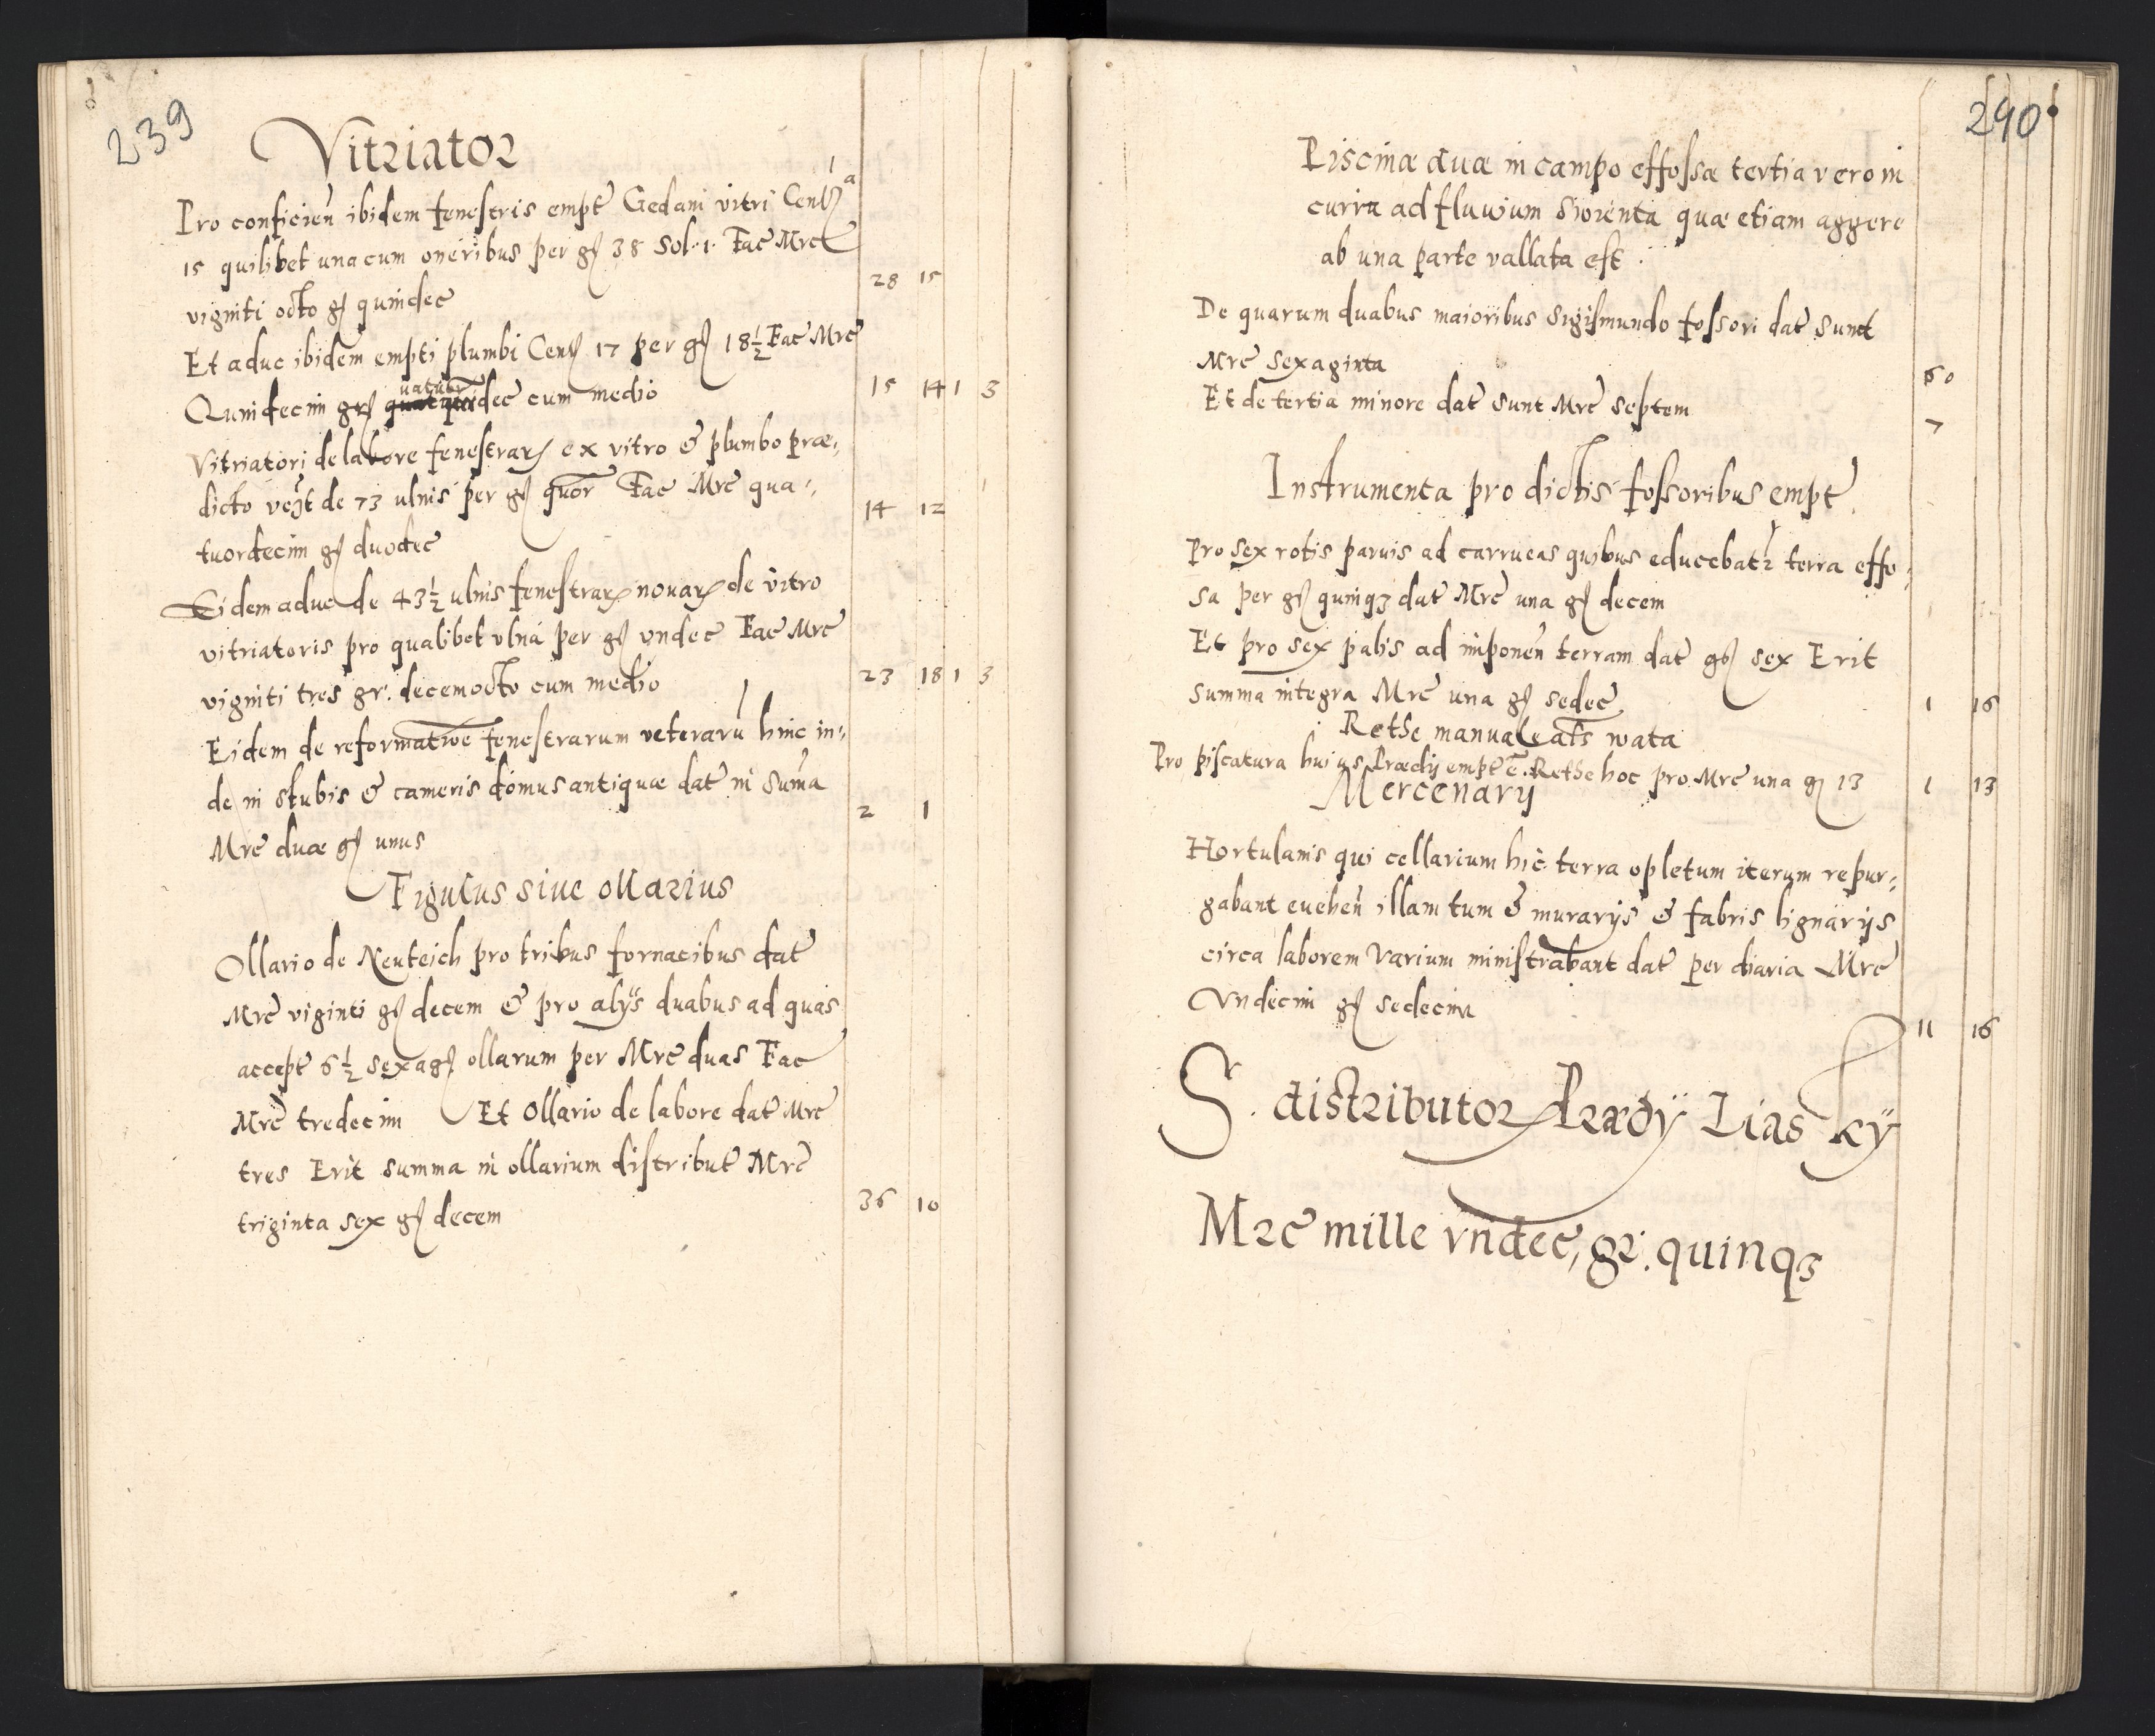 239
Vitriator
Pro conficieñ ibidem fenestris empt̃ Gedani vitri Cent̃ a
15 quilibet unacum oneribus per gr̃ 38 Sol. 1. Fac̃ Mrc̃
viginti octo gr̃ quindec̃
28 15
Et aduc ibidem empti plumbi Cent̃ 17 per gr̃ 18½ Fac̃ Mrc̃
Quindecim gr̃ uatuordec̃ cum medio
15 14 1 3
Vitriatori de labore fenestrarꝝ ex vitro & plumbo præ-,
dicto de 73 ulnis per gr̃ quor̃ Fac̃ Mrc̃ qua-,
14 12
tuordecim gr̃ duodec̃
Eidem aduc de 43½ ulnis fenestrarꝝ nouarꝝ de vitro
vitriatoris pro qualibet vlna per gr̃ vndec̃ Fac̃ Mrc̃
viginti tres gr. decemocto cum medio
23 18 1 3
Eidem de reformatiõe fenestrarum veterarũ hinc in-,
de in stubis & cameris domus antiquæ dat̃ in sum̃a
2 1
Mrc̃ duæ gr̃ unus
Figulus siue ollarius
Ollario de Neuteich pro tribus fornacibus dat̃
Mrc̃ viginti gr̃ decem & pro alijs duabus ad quas
accept̃ 6½ sexag̃ ollarum per Mrc̃ duas Fac̃
Mrc̃ tredecim Et Ollario de labore dat̃ Mrc̃
tres Erit summa in ollarium distribut̃ Mrc̃
triginta sex gr̃ decem
36 10
240
Piscinæ duæ in campo effossæ tertia vero in
ad fluuium quæ etiam aggere
ab una parte vallata est.
De quarum duabus maioribus Sigismundo fossori dat̃ sunt
Mrc̃ sexaginta
60
Et de tertia minore dat̃ sunt Mrc̃ septem
7
Instrumenta pro dictis fossoribus empt̃
Pro sex rotis paruis ad carrucas quibus educebatr terra effo-,
sa per gr̃ quinqꝫ dat̃ Mrc̃ una gr̃ decem
Et pro sex palis ad imponeñ terram dat̃ gr̃ sex Erit
summa integra Mrc̃ una gr̃ sedec̃
1 16
Rethe manuale als wata
Pro piscatura huius Prædij empt̃ ẽ. Rethe hoc pro Mrc̃ una gr̃ 13
1 13
Mercenarij
Hortulanis qui cellarium hic terra opletum iterum repur-,
gabant eueheñ illam tum & murarijs & fabris lignarijs
circa laborem varium ministrabant dat̃ per diaria Mrc̃
Vndecim gr̃ sedecim
11 16
S. distributor Prædÿ Liaskÿ
Mrc̃ mille vndec̃, gr. quinqꝫ